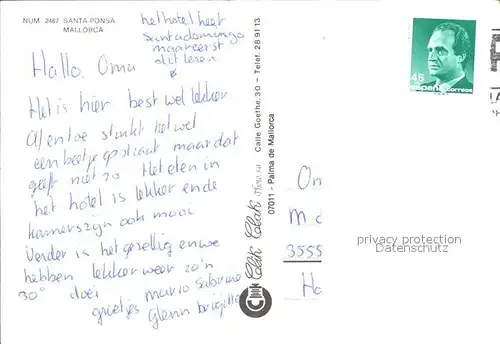 NUM 2467 SANTA PONSA
MALLORCA
het hotel heet
Santadomingo
maar eerst
dit lezen
Hallo Oma
Het is hier best wel lekker
Af en toe stinkt het wel
een beetje op straat maar dat
geeft niet zo Het eten in
het hotel is lekker en de
kamers zijn ook mooi
Verder is het gezellig en we
hebben lekker weer zo'n
30° doei
groetjes mario Sabrina
Glenn brigitte
Clak Clak
Calle Goethe, 30 - Telef. 28 91 13
07011 - Palma de Mallorca
45
España correos
On
M
3555
Ho
privacy protection
Datenschutz